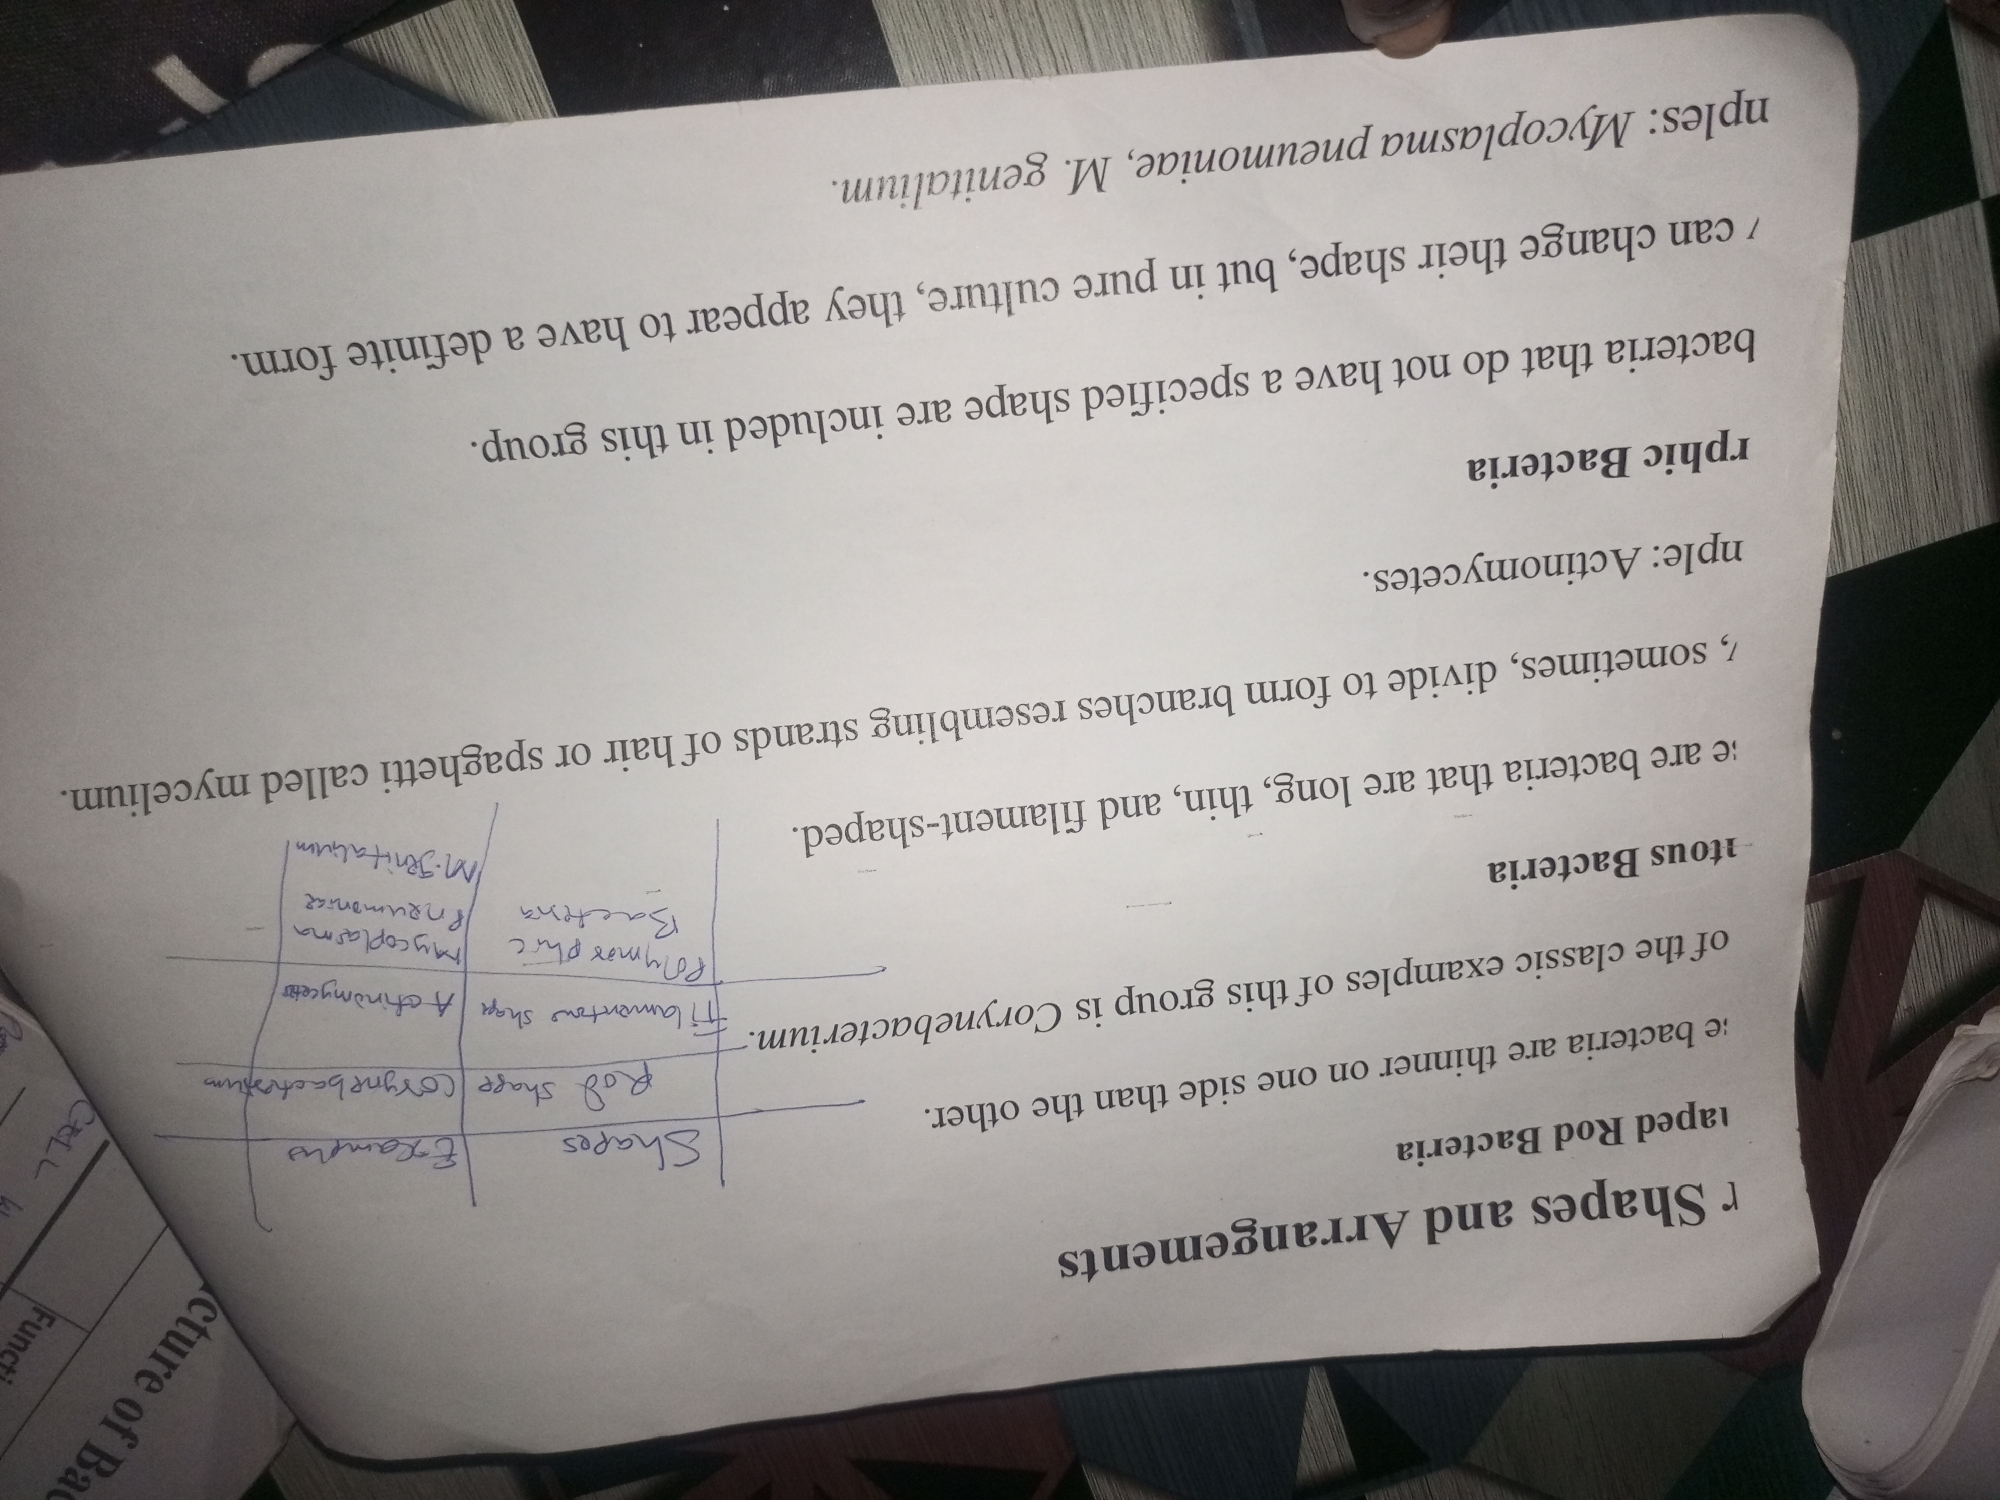 r Shapes and Arrangements
aped Rod Bacteria
e bacteria are thinner on one side than the other.
of the classic examples of this group is Corynebacterium.
tous Bacteria
e are bacteria that are long, thin, and filament-shaped.
, sometimes, divide to form branches resembling strands of hair or spaghetti called mycelium.
nple: Actinomycetes.
rphic Bacteria
bacteria that do not have a specified shape are included in this group.
can change their shape, but in pure culture, they appear to have a definite form.
nples: Mycoplasma pneumoniae, M. genitalium.
Shapes Examples
Rod shape Corynebacterium
Filamentous shape Actinomycetes
Polymorphic Mycoplasma
Bacteria Pneumoniae
M. genitalium
cture of Bac
Functi
CELL W